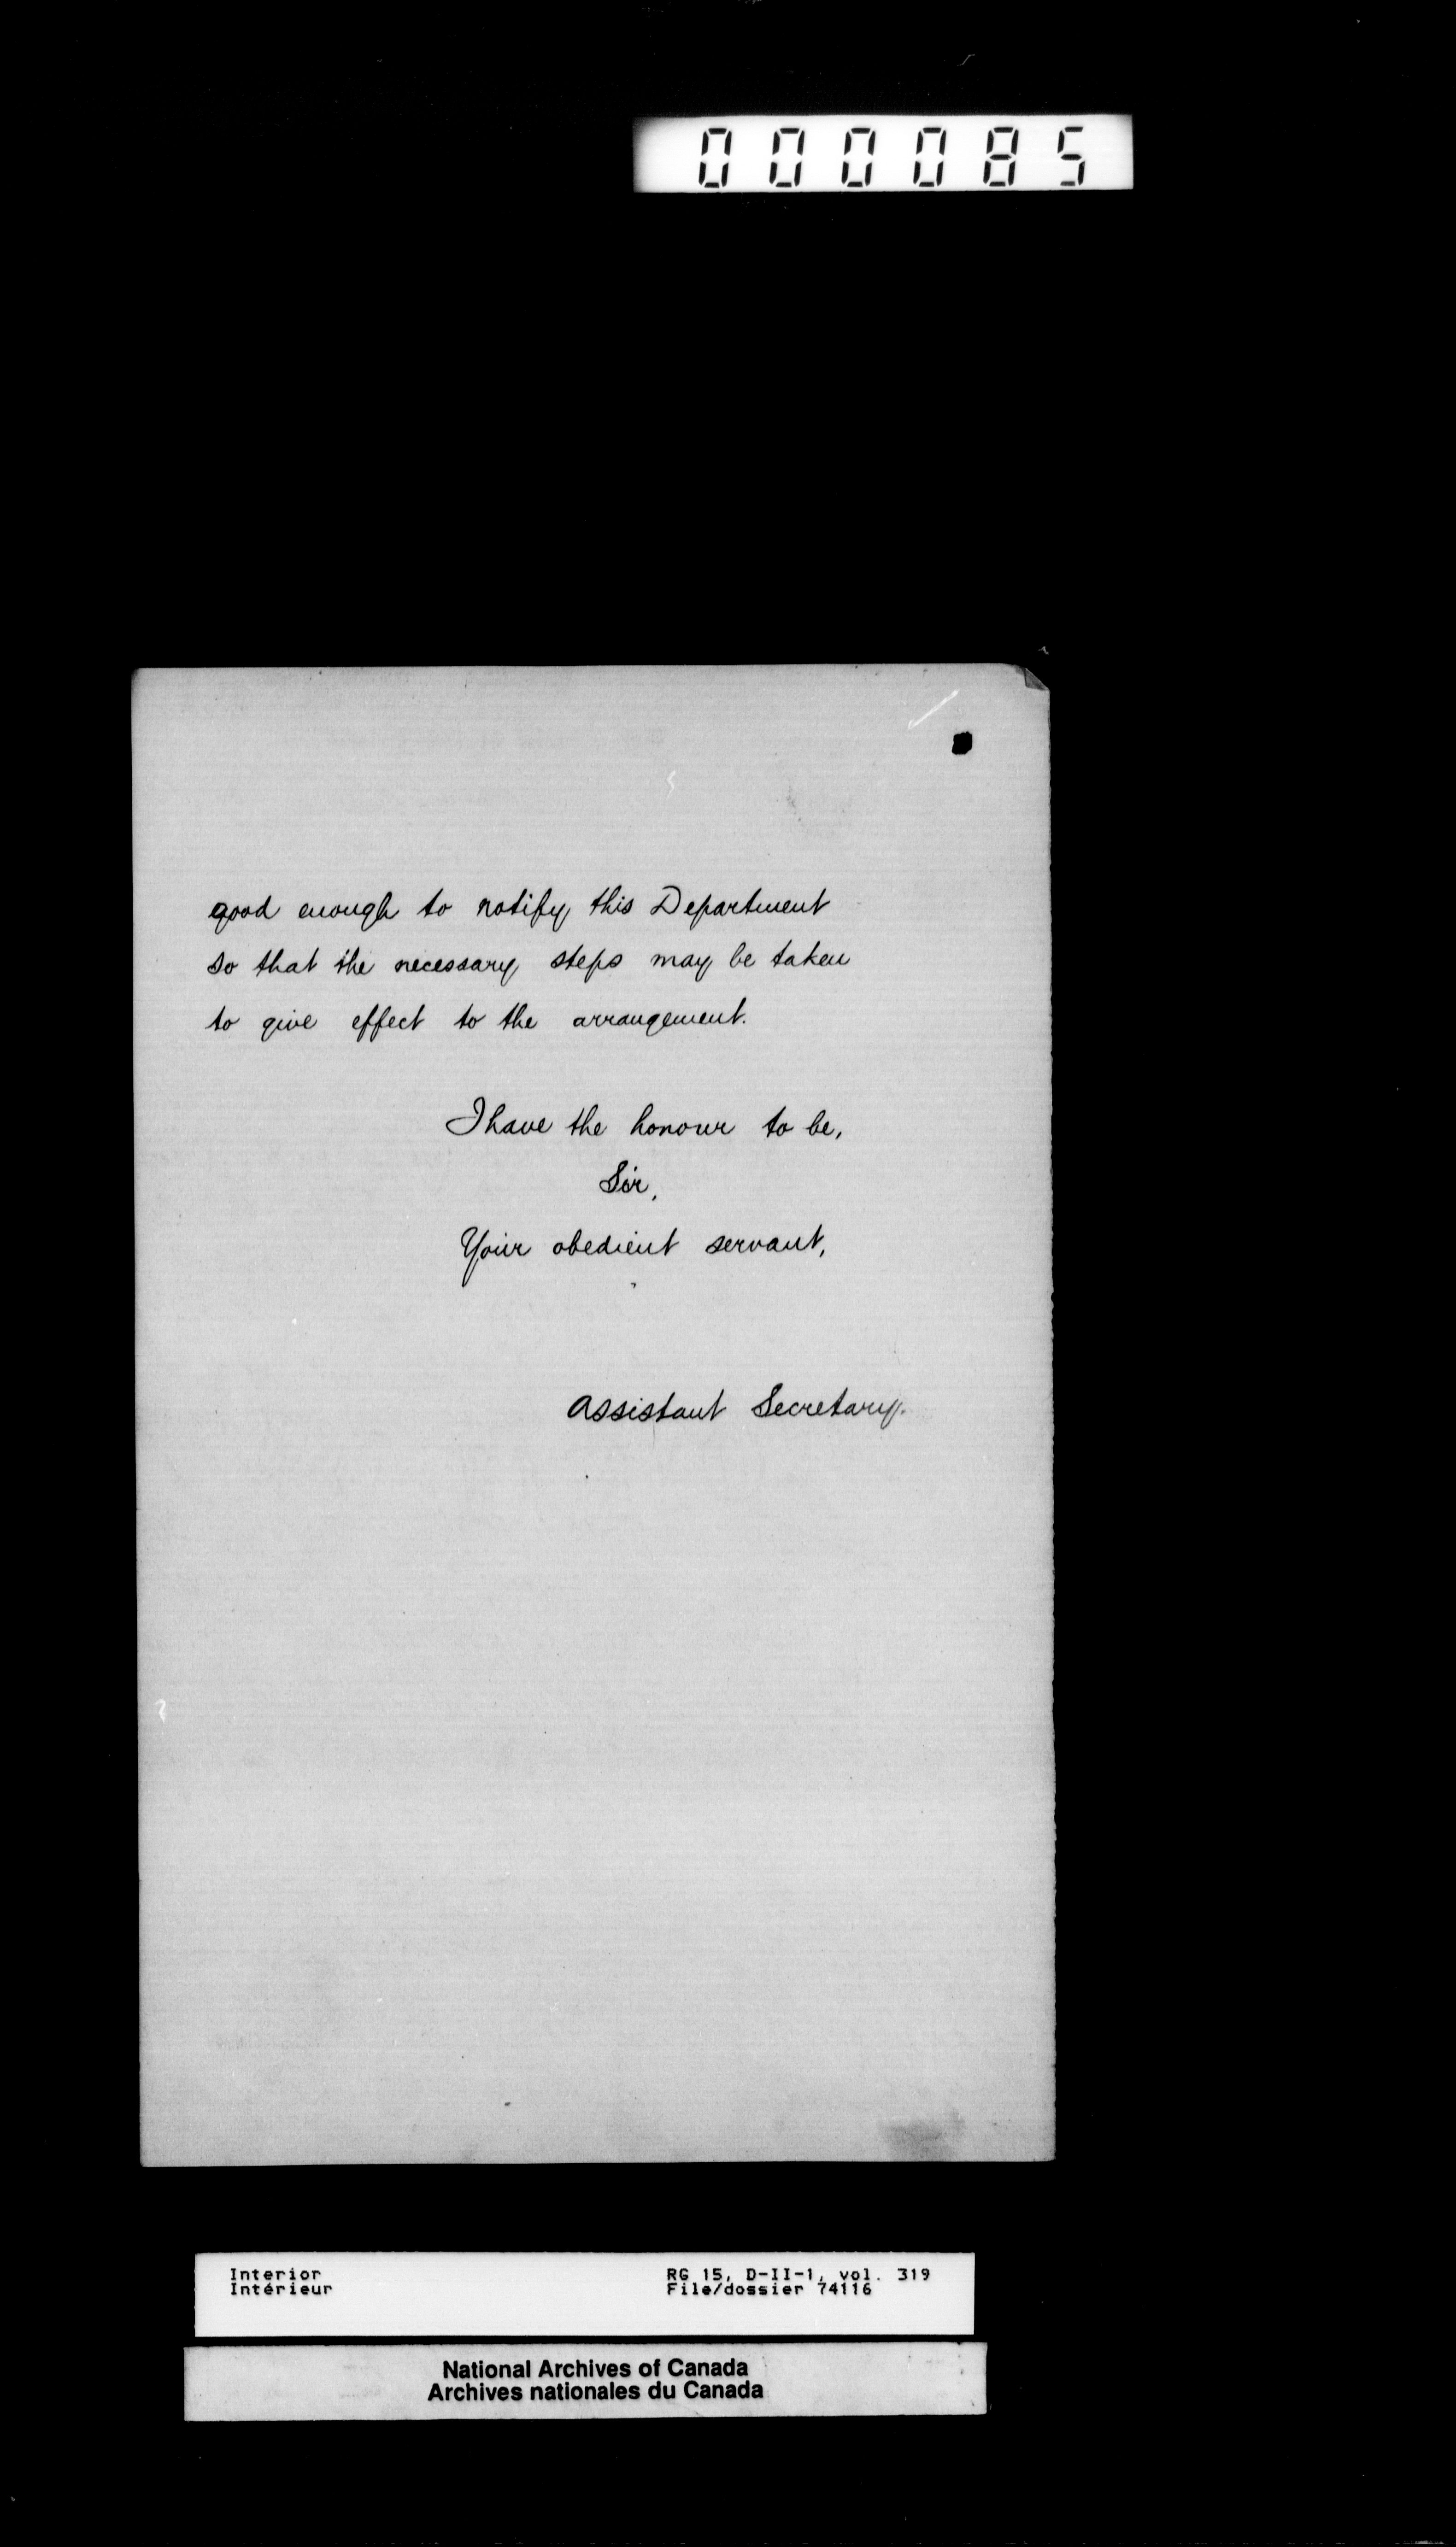 000085
good enough to notify this Department
so that the necessary steps may be taken
to give effect to the arrangement.
I have the honour to be,
Sir,
Your obedient servant,
Assistant Secretary.
Interior
Intérieur
RG 15, D-II-1, vol. 319
File/dossier 74116
National Archives of Canada
Archives nationales du Canada